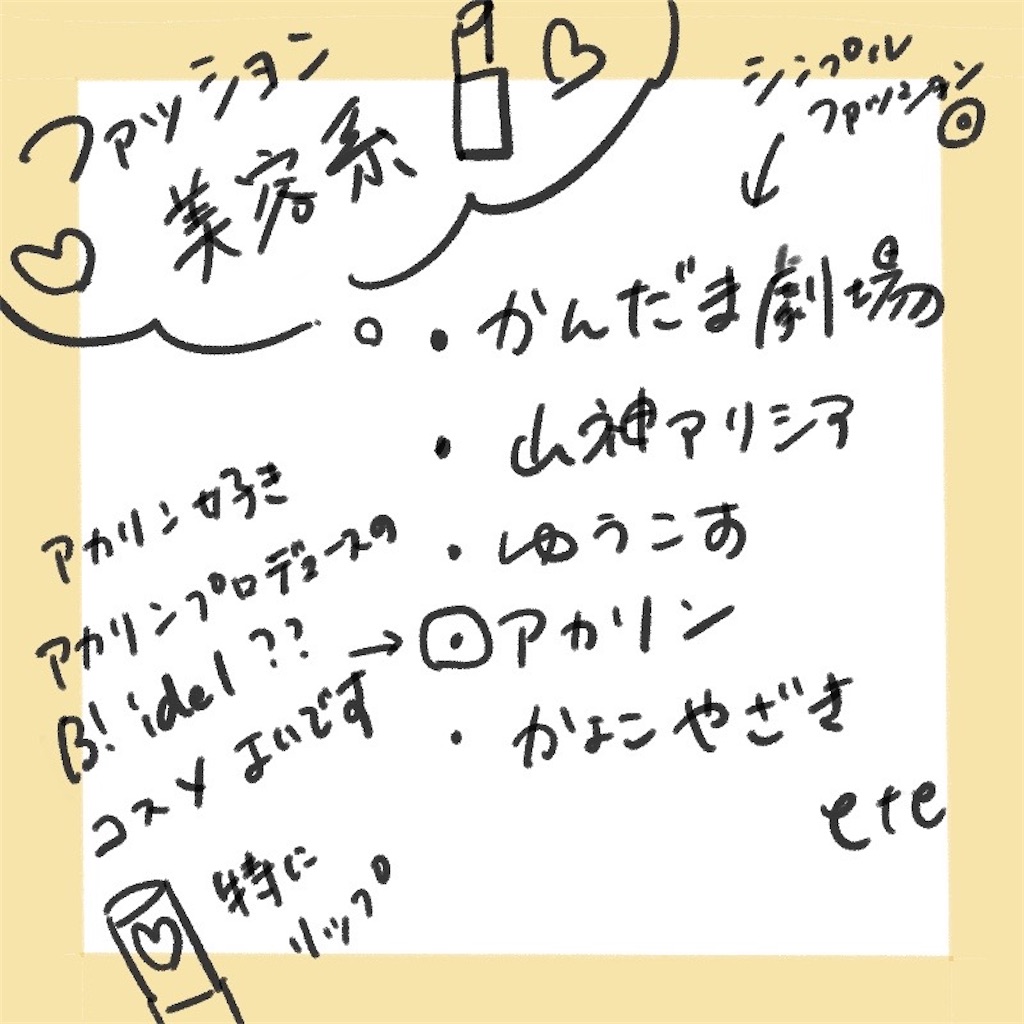 ファッション
美容系
シンプル
ファッション
・かんだま劇場
・山神アリシア
・ゆうこす
アカリン
・かょこやざき
ete
アカリン好き
アカリンプロデュースの
B! idel??
コスメよいです
特に
リップ